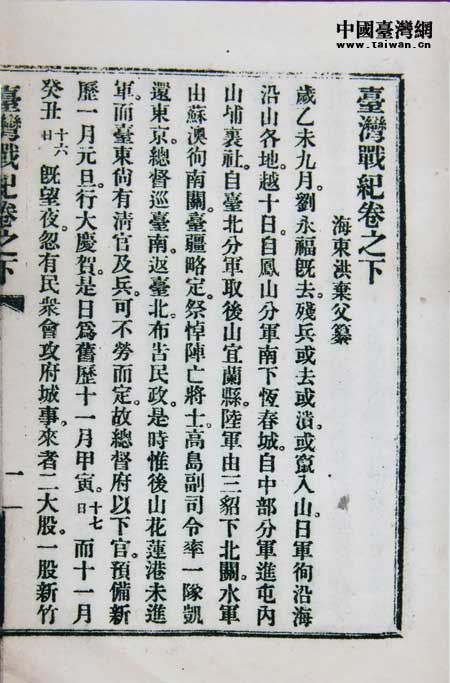 中國臺灣網
www.taiwan.cn
臺灣戰紀卷之下
海東洪棄父纂
歲乙未九月。劉永福旣去。殘兵或去或潰。或竄入山。日軍徇沿海
沿山各地。越十日。自鳳山分軍南下恆春城。自中部分軍進屯內
山埔裏社。自臺北分軍取後山宜蘭縣。陸軍由三貂下北關。水軍
由蘇澳徇南關。臺疆略定。祭悼陣亡將士。高島副司令率一隊凱
還東京。總督巡臺南。返臺北。布告民政。是時惟後山花蓮港未進
軍。而臺東尙有淸官及兵。可不勞而定。故總督府以下官。預備新
歷一月元旦。行大慶賀。是日爲舊歷十一月甲寅。十七日而十一月
癸丑十六日旣望夜。忽有民衆會攻府城事。來者二大股。一股新竹
臺灣戰紀卷之下
一